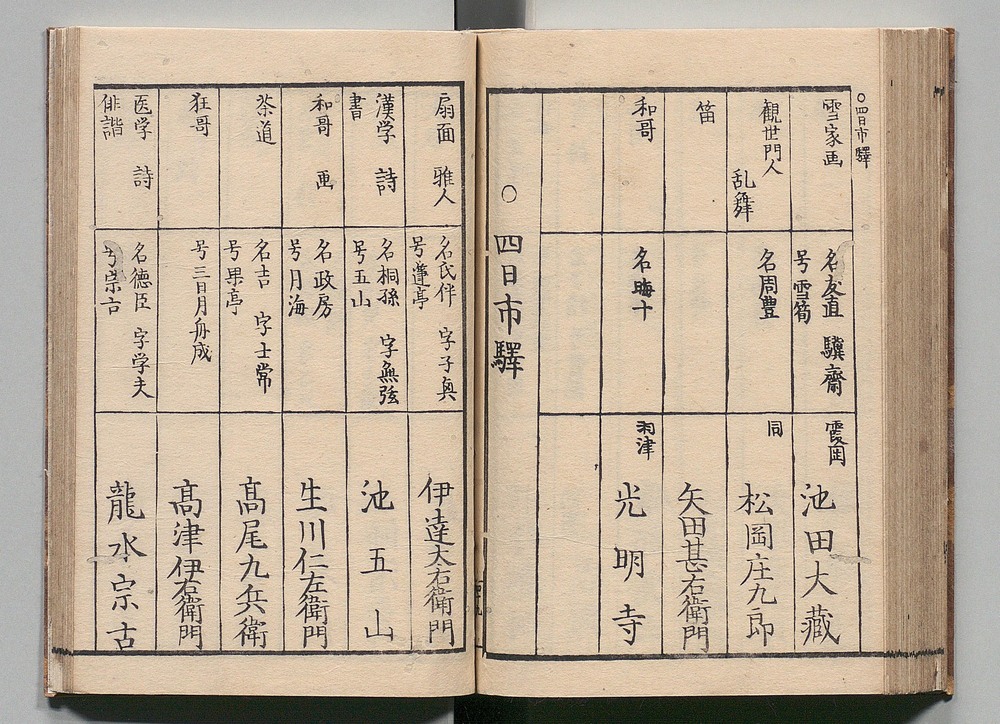 ○四日市驛
雪家画
名友直 驥齋
号雪筍
霞岡
池田大藏
観世門人
乱舞
名周豊
同
松岡庄九郎
笛
矢田甚右衛門
和哥
名晦十
羽津
光明寺
○四日市驛
扇面 雅人
名氏伴 字子奥
号蓬亭
伊達太右衛門
漢学 詩
書
名桐孫 字無弦
号五山
池五山
和哥 画
名政房
号月海
生川仁左衛門
茶道
名吉 字士常
号果亭
高尾九兵衛
狂哥
号三日月舟成
高津伊右衛門
医学 詩
俳諧
名德臣 字学夫
号崇古
龍水宗古